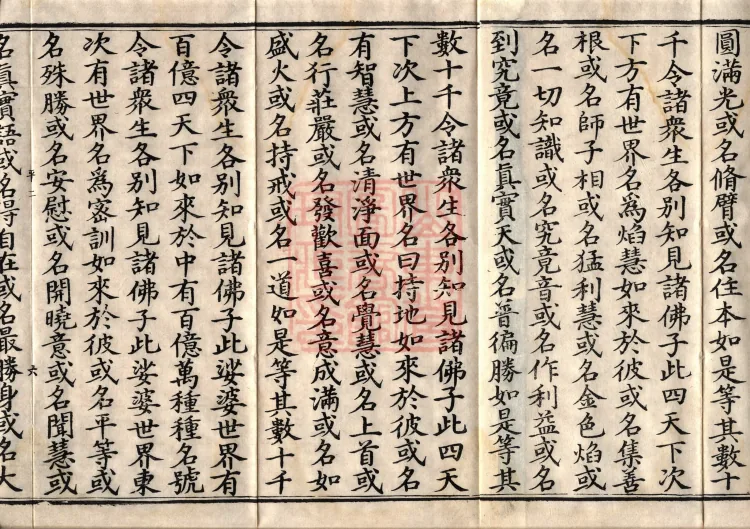 圓滿光或名脩臂或名住本如是等其數十
千令諸衆生各別知見諸佛子此四天下次
下方有世界名爲焰慧如來於彼或名集善
根或名師子相或名猛利慧或名金色焰或
名一切知識或名究竟音或名作利益或名
到究竟或名真實天或名普徧勝如是等其
數十千令諸衆生各別知見諸佛子此四天
下次上方有世界名曰持地如來於彼或名
有智慧或名清淨面或名覺慧或名上首或
名行莊嚴或名發歡喜或名意成滿或名如
盛火或名持戒或名一道如是等其數十千
令諸衆生各別知見諸佛子此娑婆世界有
百億四天下如來於中有百億萬種種名號
令諸衆生各別知見諸佛子此娑婆世界東
次有世界名爲密訓如來於彼或名平等或
名殊勝或名安慰或名開曉意或名聞慧或
平二 六
名真實語或名得自在或名最勝身或名大